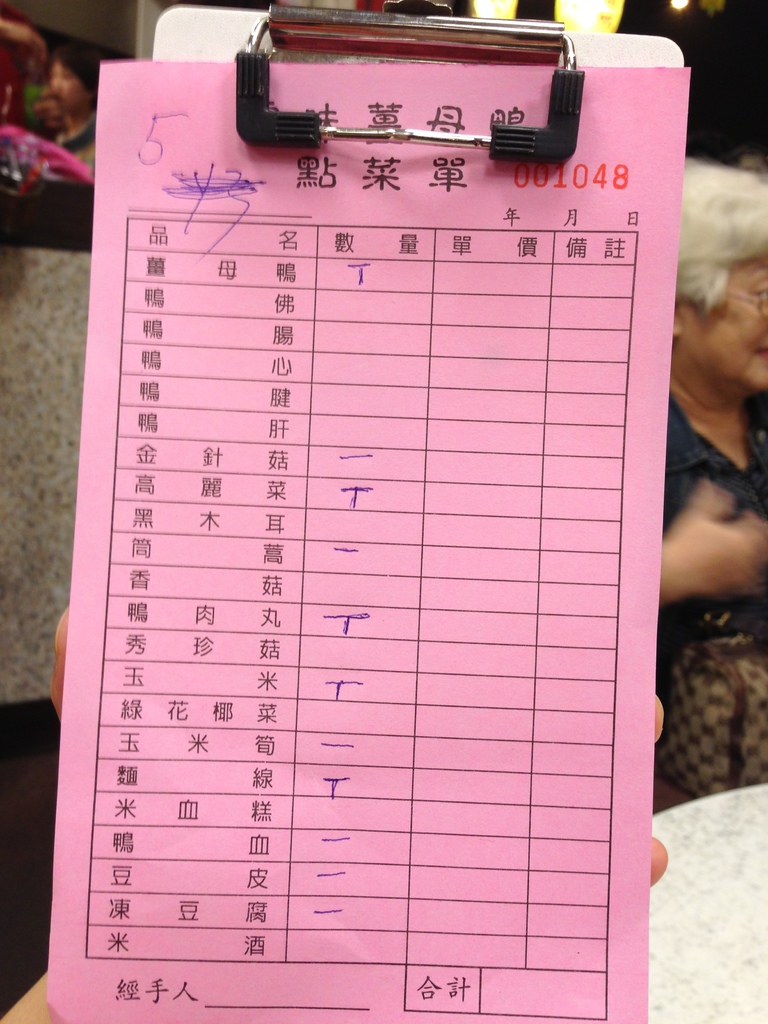 5
味薑母鴨
點菜單 001048
年 月 日
品名 數量 單價 備註
薑母鴨 丅
鴨佛
鴨腸
鴨心
鴨腱
鴨肝
金針菇 一
高麗菜 丅
黑木耳
筒蒿 一
香菇
鴨肉丸 丅
秀珍菇
玉米 丅
綠花椰菜
玉米筍 一
麵線 丅
米血糕
鴨血 一
豆皮 一
凍豆腐 一
米酒
經手人 合計